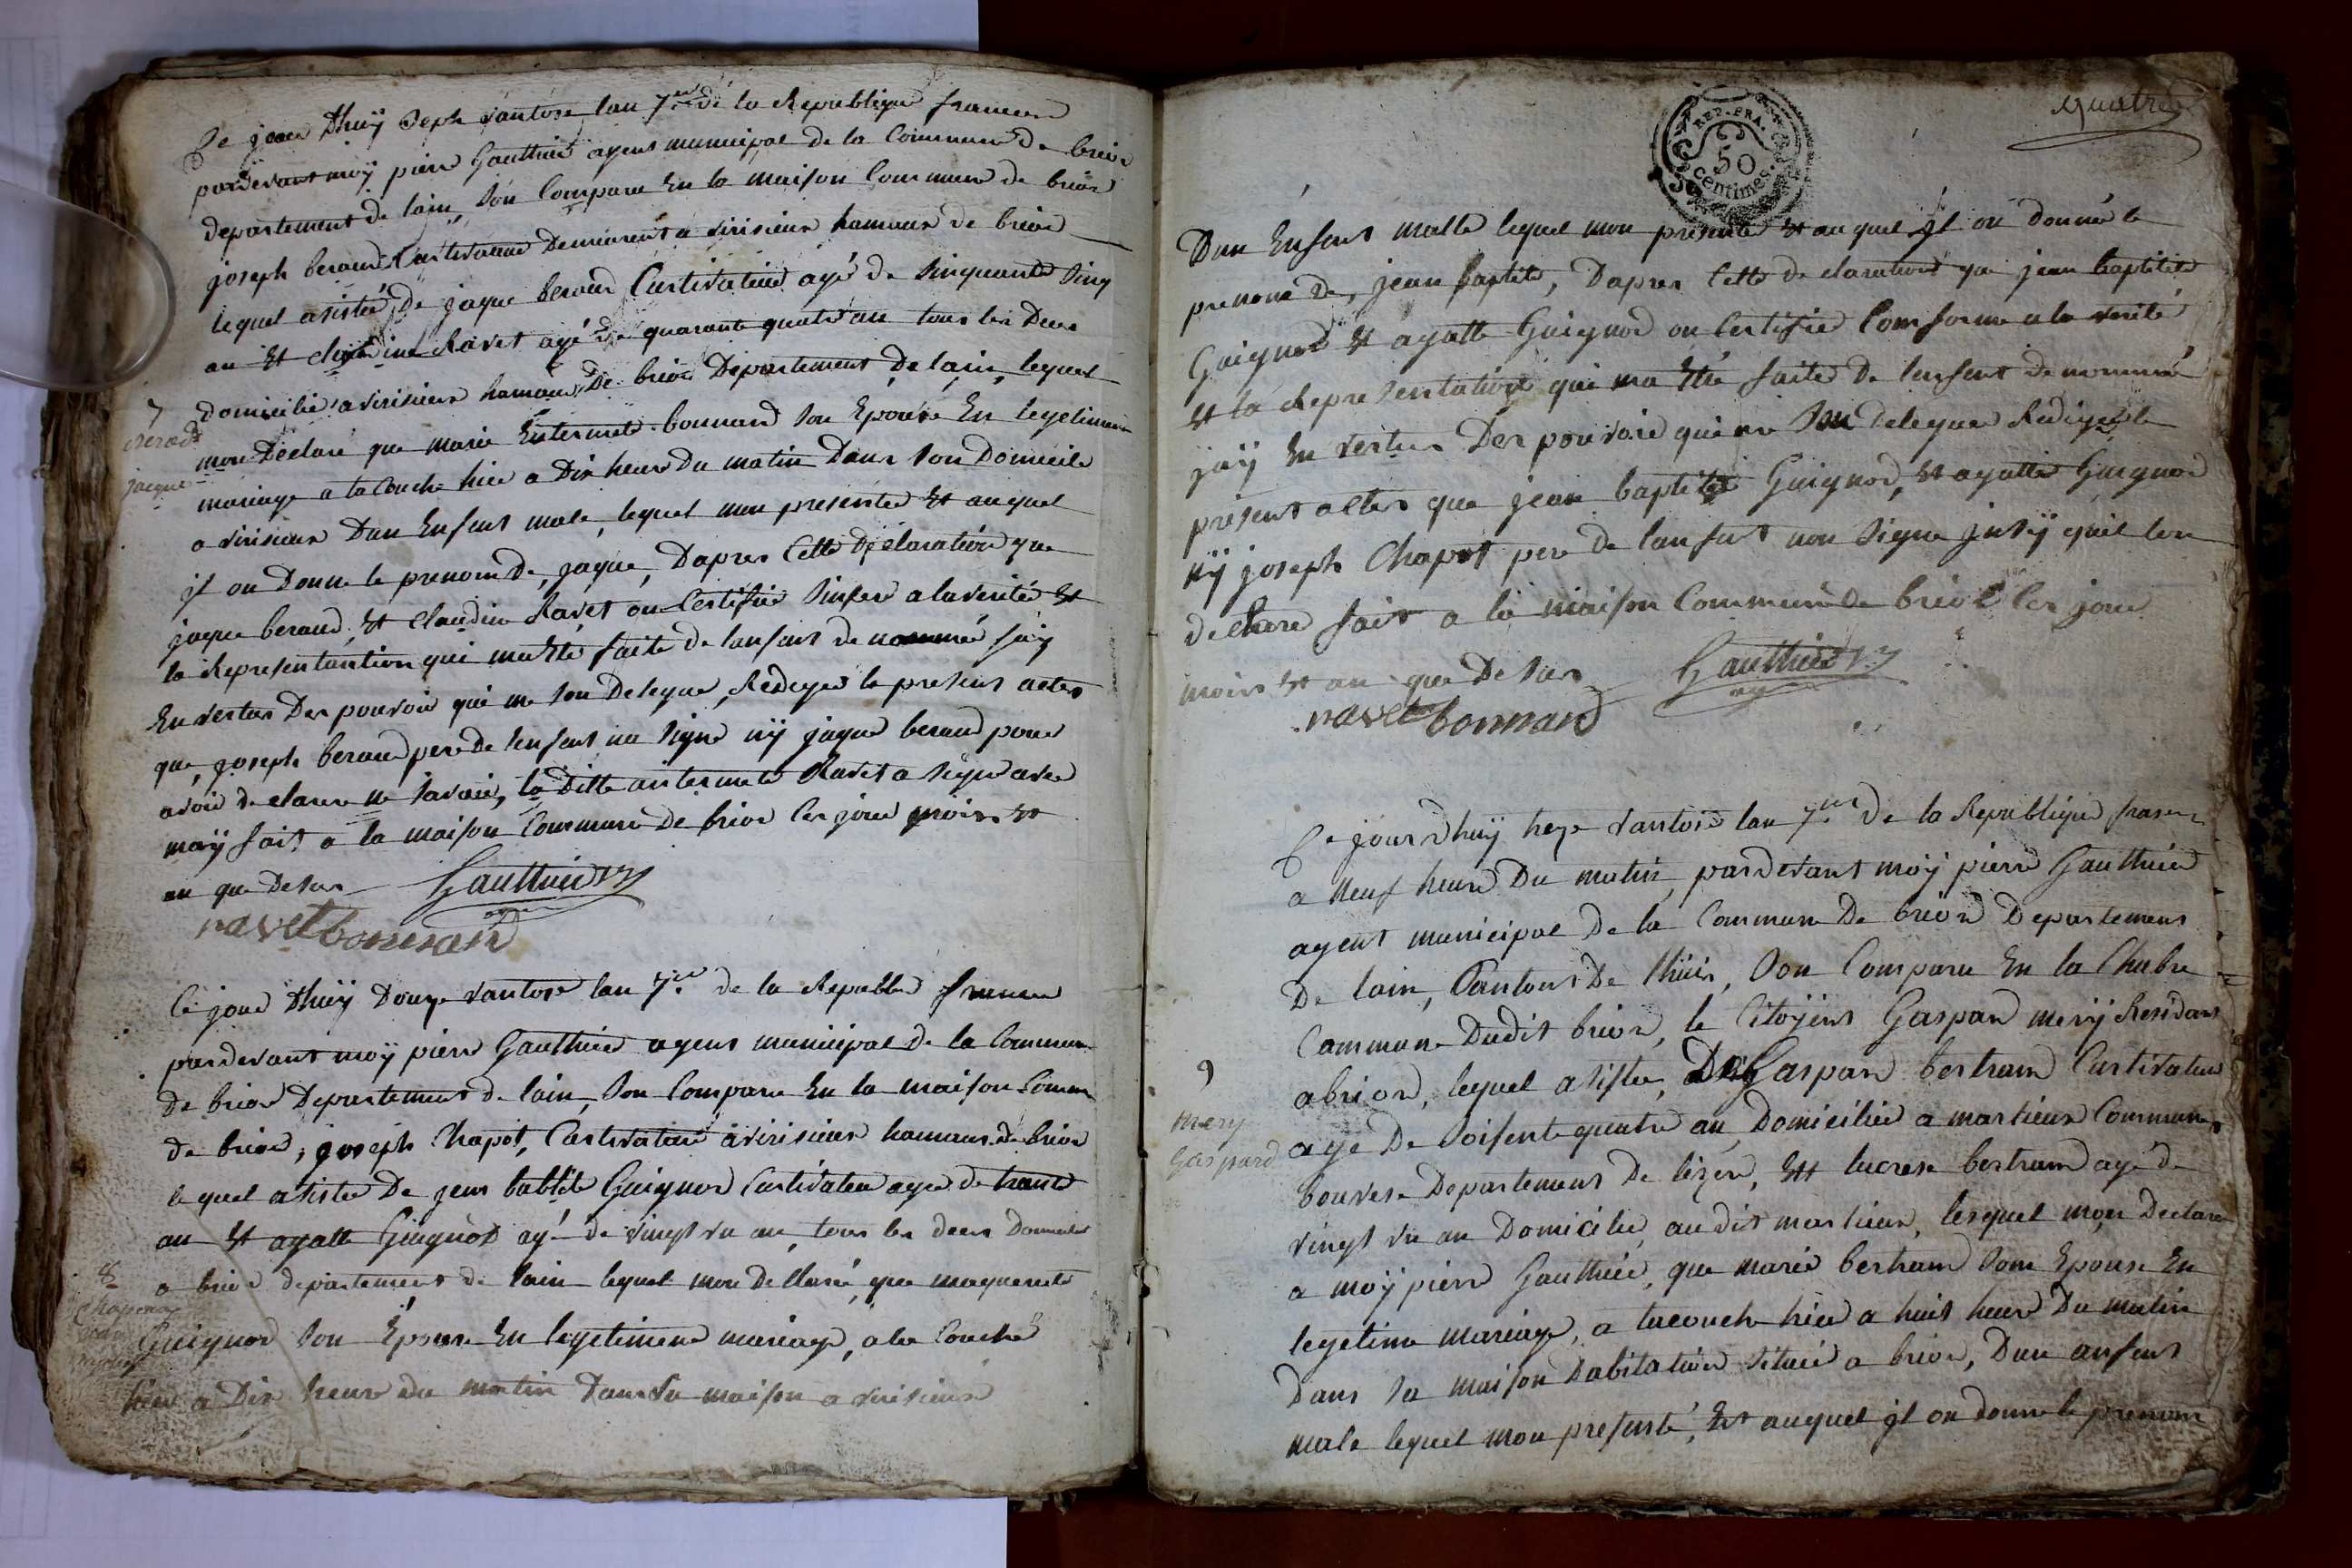 Ce jour Dhuÿ Seph vantose lan 7me de la Republique francen
pardevant moÿ pierre Gauthier agent municipal de la Commune de brion
departement de lain, son Compare en la maison Commune de brion
joseph beraud Cultivateur Demeurent a virisieux hamaux de brion
lequel asistée De jaque beraud Cultivateur agé de sinquante sinq
an et claudine Ravet agé de quarante quatre an tous les Deux
domicilié a virisieux hamaux De brion Departement De lain, lequel
mon Déclaré que marie Entermete bonnard son Epouse En legetimen
mariage a lacouche hier a Dix heure Du matin Dans son Domicile
a virisieux Dun Enfent male, lequel mon presenter et auquel
jl on Donne le prenom de, jaque, Dapres Cette Declaration que
jaque beraud, et claudine Ravet on Certifier sinsere a la verité et
la Representantion qui ma Eté faite de lanfent denommé jaÿ
En vertus Des pouvoir qui me son Delegue, Rédiger le present actes
que, joseph beraud pere de lenfent na signe nÿ jaque beraud pour
avoir declarer ne savoir, la Ditte antermete Ravet a signe avec
moÿ fait a la maison Commune De brion les jour mois et
an que Desus Gauthier
ravet bonnard
7
beraud
jaque
Ce jour Dhuÿ Douze vantose lan 7me de la Republi francen
pardevant moÿ pierre Gauthier agent municipal de la Commune
de brion Departement de lain, son Compare En la maison Comm
de brion, joseph Chapot, Cultivateur a virisieux hamaux de brion
lequel asister De jean batiste Guignod Cultivateur agee de trante
an et agatte Guignod agé de vingt un an, tous les deux Domicilier
a brion departement de lain lequel mon Dellaré, que
Guignod son Epouse En legetimene mariage, a la Couché
hier a Dix heure du matin Dans sa maison a virisieux
8
Chapot
jean
Quatre
REP. FRA.
50
centimes
Dun Enfent malle lequel mon presenté et auquel jl on donné le
prenom de, jean baptite, Dapres Cette declaration que jean baptiste
Guignod et agatte Guignod on Certifier Comforme a la verité
et la Representation qui ma Eté faite De lenfent denommé
jaÿ En vertus Des pouvoir qui me son delegue Rediger le
present actes que jean baptiste Guignod, et agatte Guignod
nÿ joseph Chapot pere de lanfent non signe jnsÿ quil lon
declare fait a la maison Commune de brion les jour
mois et an que Desus Gauthier
ravet bonnard
Ce jour Dhuÿ heze vantose lan 7me De la Republique franse
a neuf heure Du matin, pardevant moÿ pierre Gauthier
agent municipal De la Commune De brion Departement
De lain, Cantons De lhuis, son Compare En la Chabre
Commune Dudit brion, le Citoÿens Gaspar merÿ Residant
a brion, lequel asister, De Gaspar bertram Cultivateur
age De soisente quatre an Domicilier a martieux Commune
bouvese Departement De lizer, Ett lucrese bertram agé de
vingt un an Domicilie, au dit martieux, lesquel mon Declare
a moÿ pierre Gauthier, que marie bertram som Epouse En
legetime mariage, a lacouche hier a huit heure Du matin
Dans sa maison Dabitation situee a brion, Dun anfent
male lequel mon presenté, Et auquel jl on donne le prenom
9
mery
Gaspard